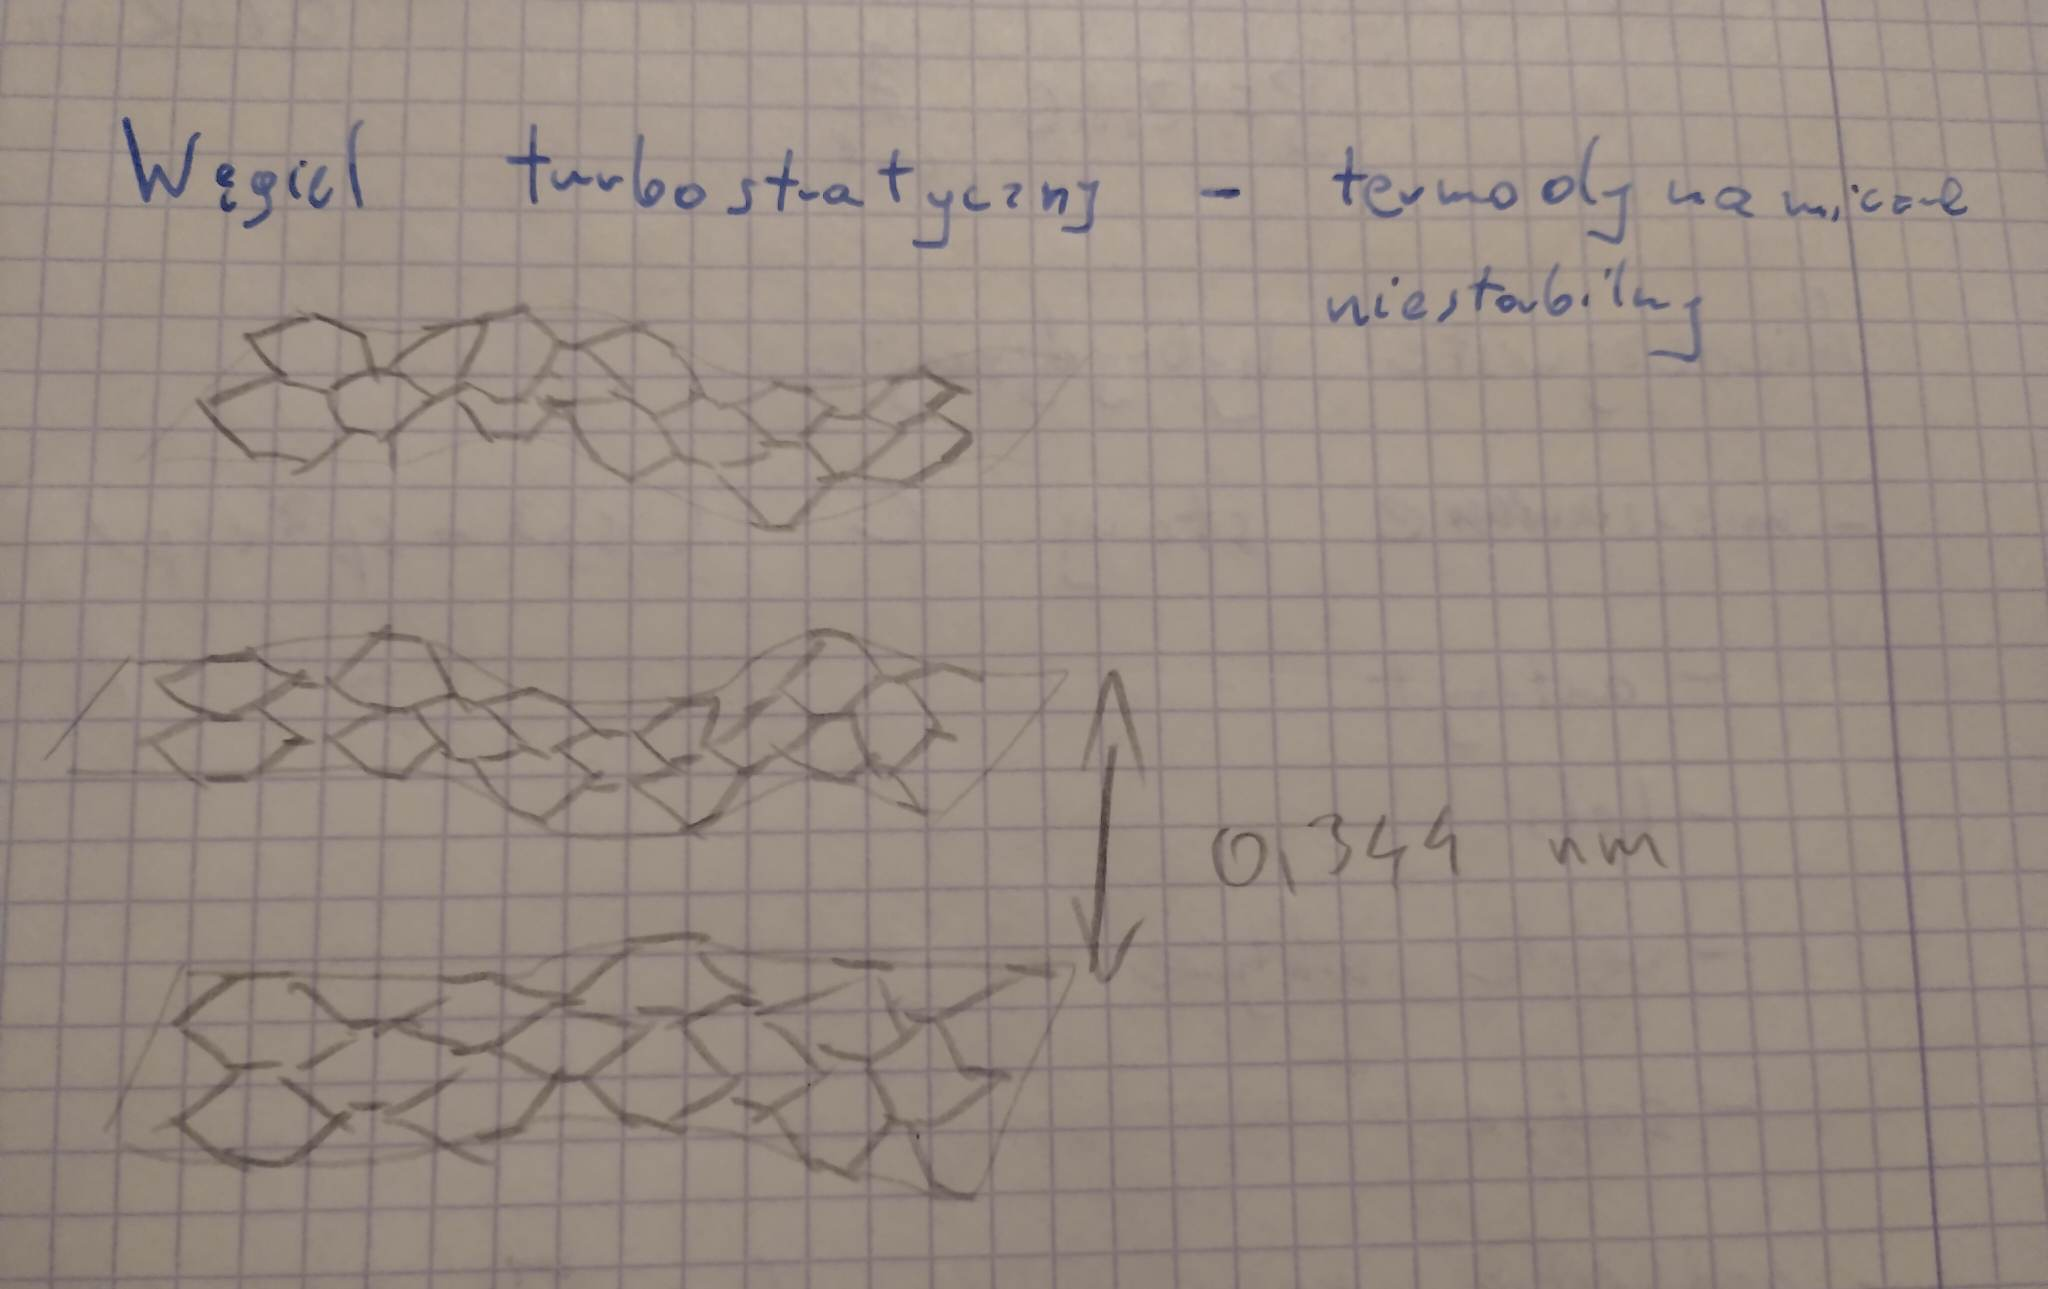 Węgiel turbostratyczny - termodynamicznie
niestabilny
0,344 nm